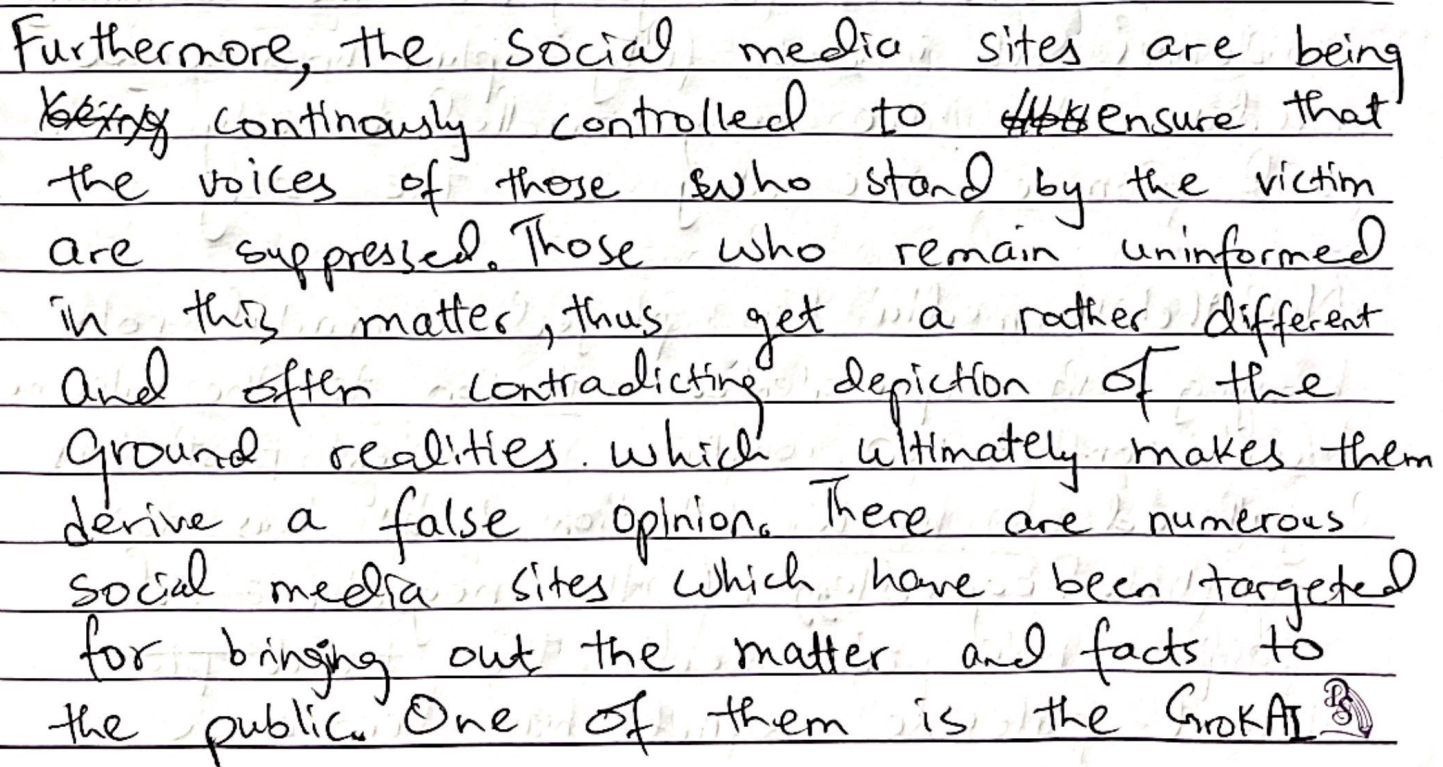 Furthermore, the social media sites are being
being continously controlled to ensure that
the voices of those who stand by the victim
are suppressed. Those who remain uninformed
in this matter, thus get a rather different
and often contradicting depiction of the
ground realities which ultimately makes them
derive a false opinion. There are numerous
social media sites which have been targeted
for bringing out the matter and facts to
the public. One of them is the GrokAI